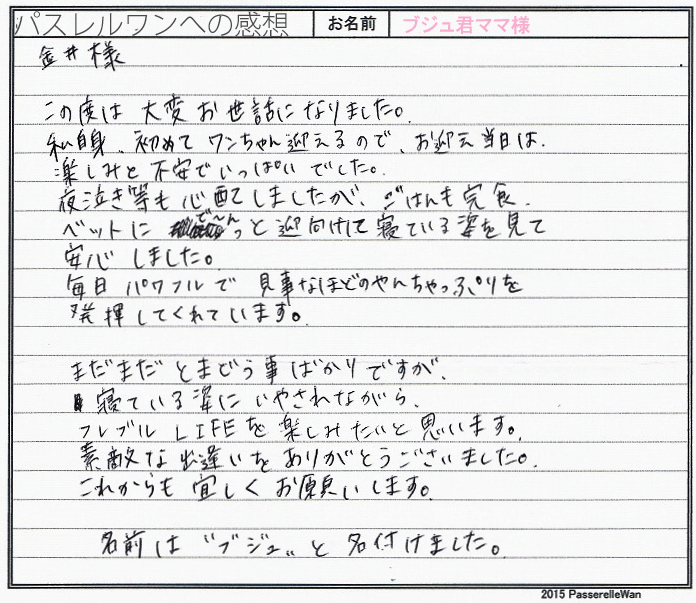 パスレルワンへの感想 お名前 ブジュ君ママ様
金井様
この度は 大変お世話になりました。
私自身、初めて ワンちゃん迎えるので、お迎え当日は、
楽しみと 不安でいっぱい でした。
夜泣き等も心配しましたが、ごはんも完食、
ベットに で〜んっと 迎向けて 寝ている姿を見て
安心 しました。
毎日 パワフルで 見事なほどのやんちゃっぷりを
発揮してくれています。
まだまだ とまどう事ばかりですが、
寝ている姿に いやされながら、
フレブル LIFEを 楽しみたいと 思います。
素敵な 出逢いを ありがとうございました。
これからも 宜しく お願いします。
名前は "ブジュ" と 名付けました。
2015 PasserelleWan